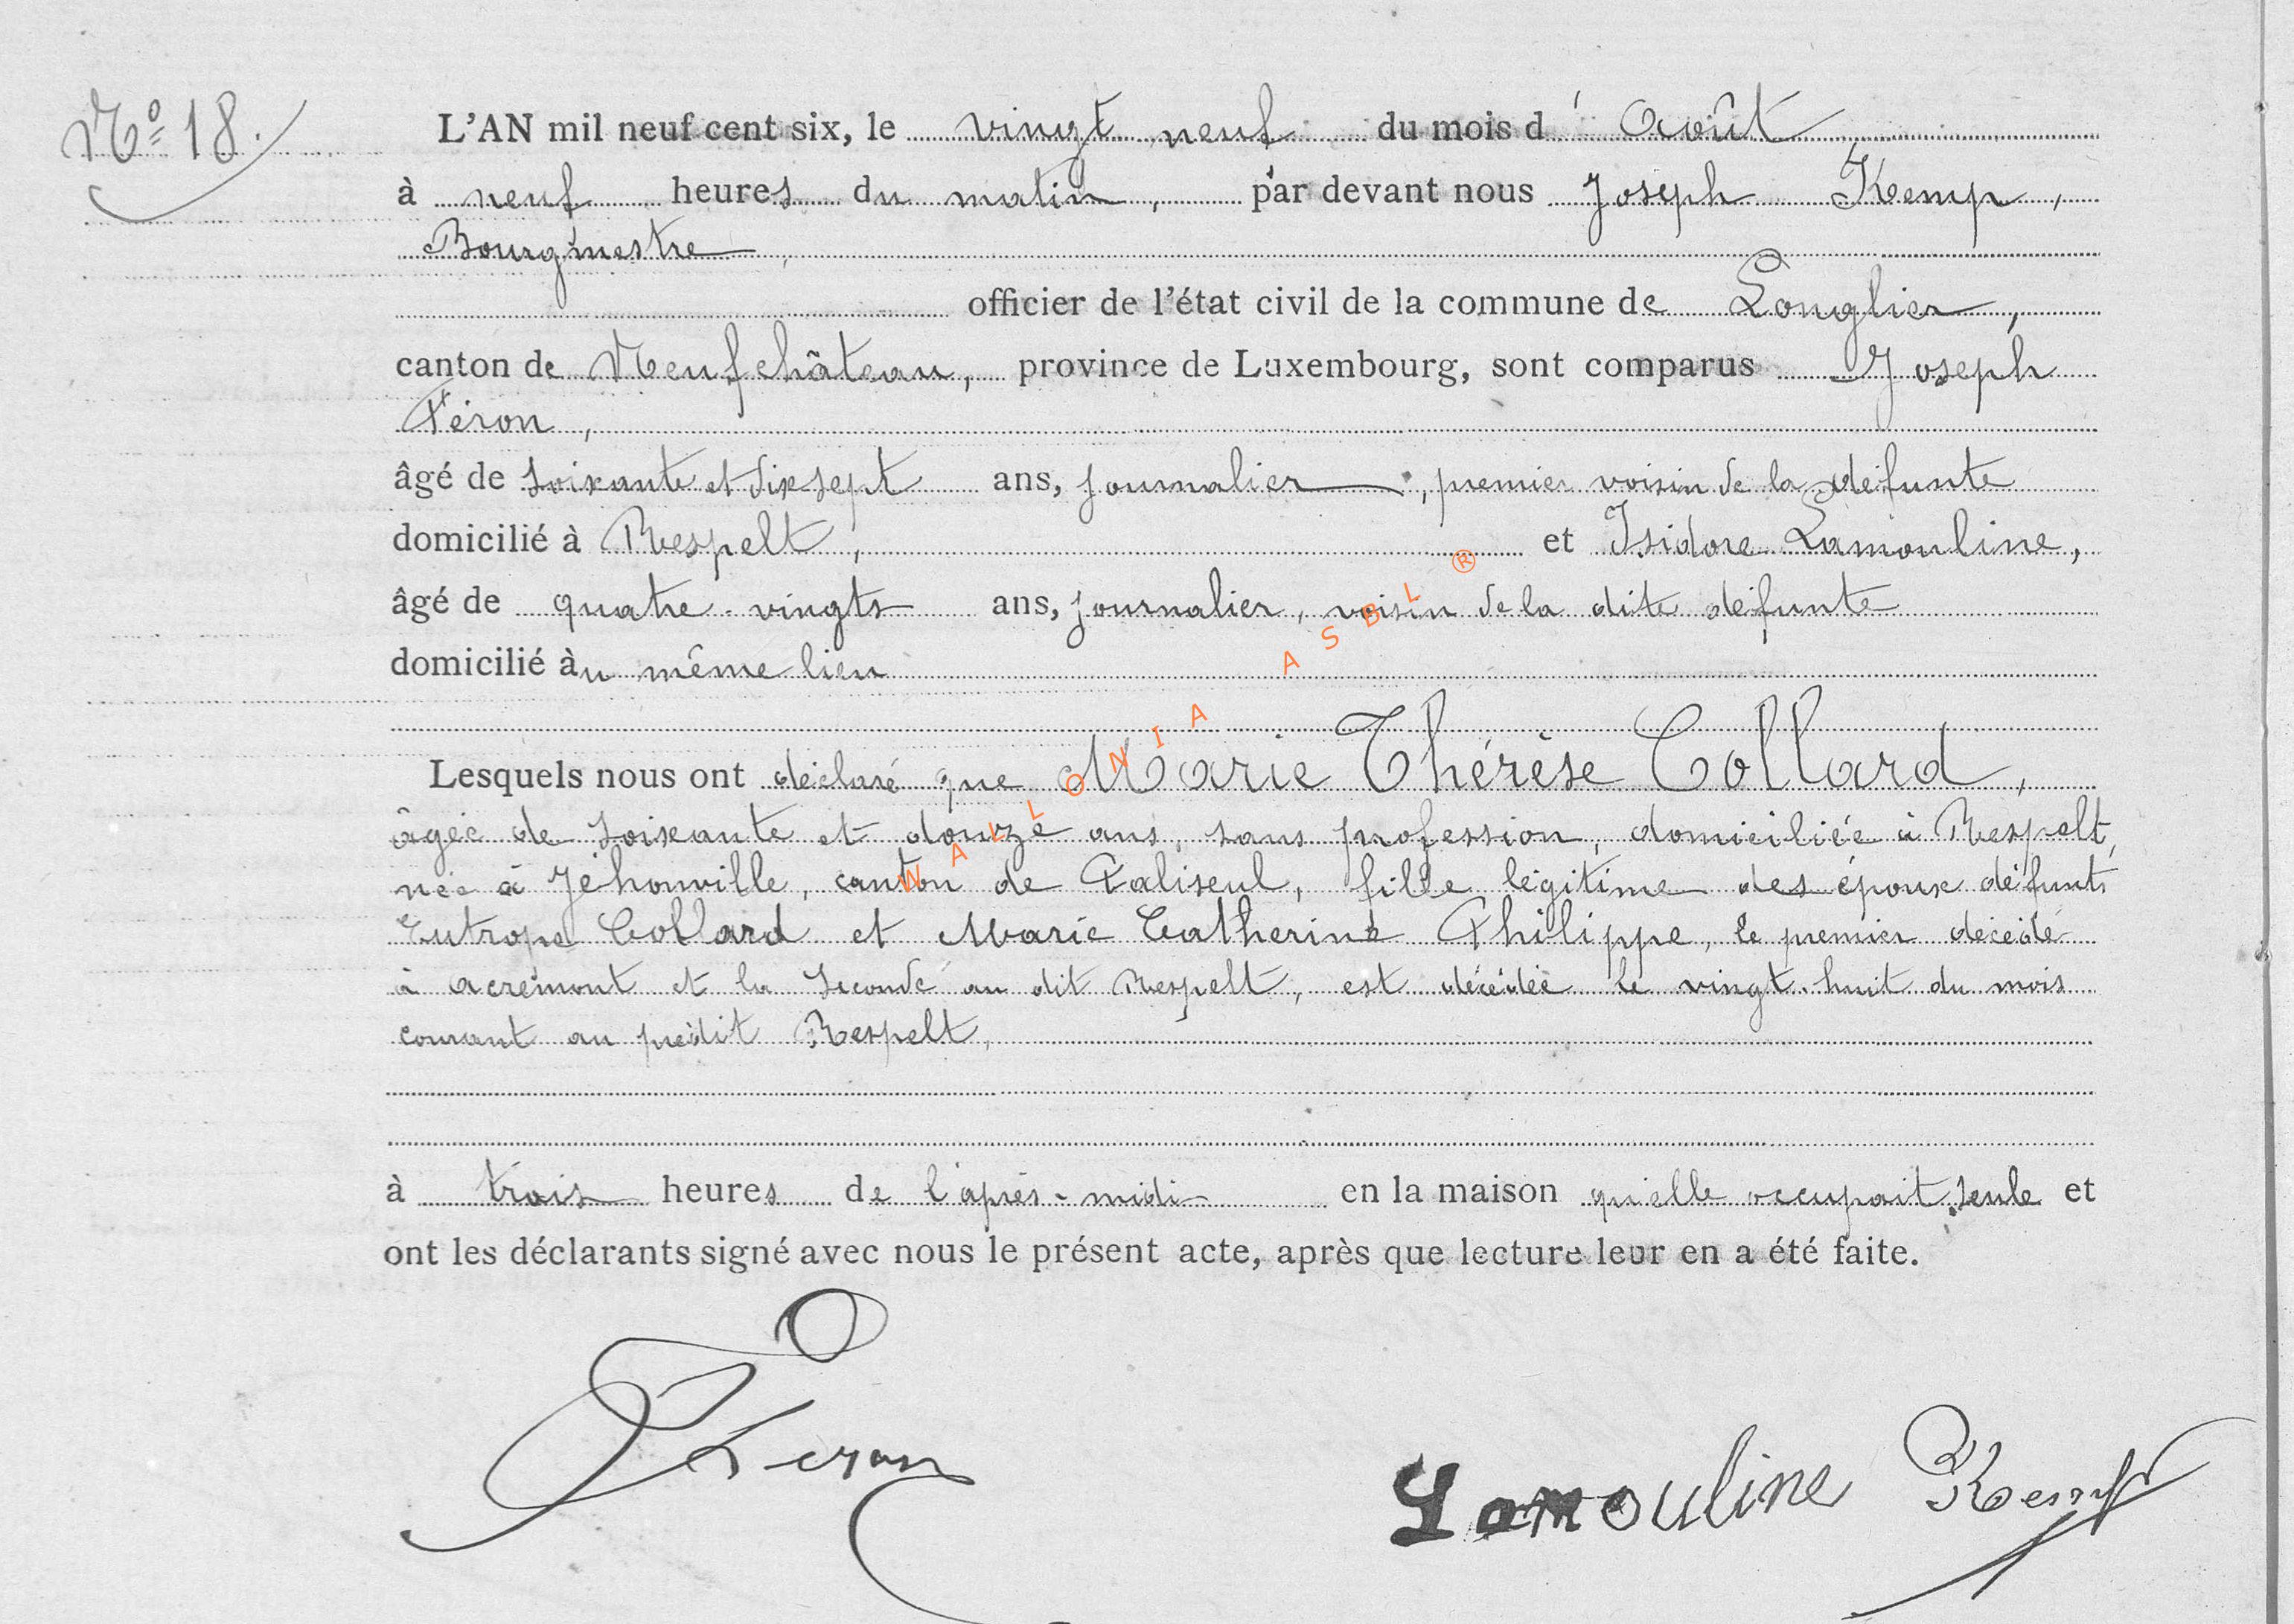 Nº 18.
L'AN mil neuf cent six, le vingt neuf du mois d'Août
à neuf heures du matin, par devant nous Joseph Kemp,
Bourgmestre,
officier de l'état civil de la commune de Longlier,
canton de Neufchâteau, province de Luxembourg, sont comparus Joseph
Féron,
âgé de soixante et dix sept ans, journalier, premier voisin de la défunte
domicilié à Respelt, et Isidore Lamouline,
âgé de quatre-vingts ans, journalier, voisin de la dite défunte
domicilié àu même lieu
Lesquels nous ont déclaré que Marie Thérèse Collard,
âgée de soixante et douze ans, sans profession, domiciliée à Respelt,
née à Jéhonville, canton de Paliseul, fille légitime des époux défunts
Eutrope Collard et Marie Catherine Philippe, le premier décédé
à acremont et la seconde au dit Respelt, est décédée le vingt-huit du mois
courant au prédit Respelt,
à trois heures de l'après-midi en la maison qu'elle occupait seule et
ont les déclarants signé avec nous le présent acte, après que lecture leur en a été faite.
Féron
Lamouline Kemp
WALLONIA ASBL ®